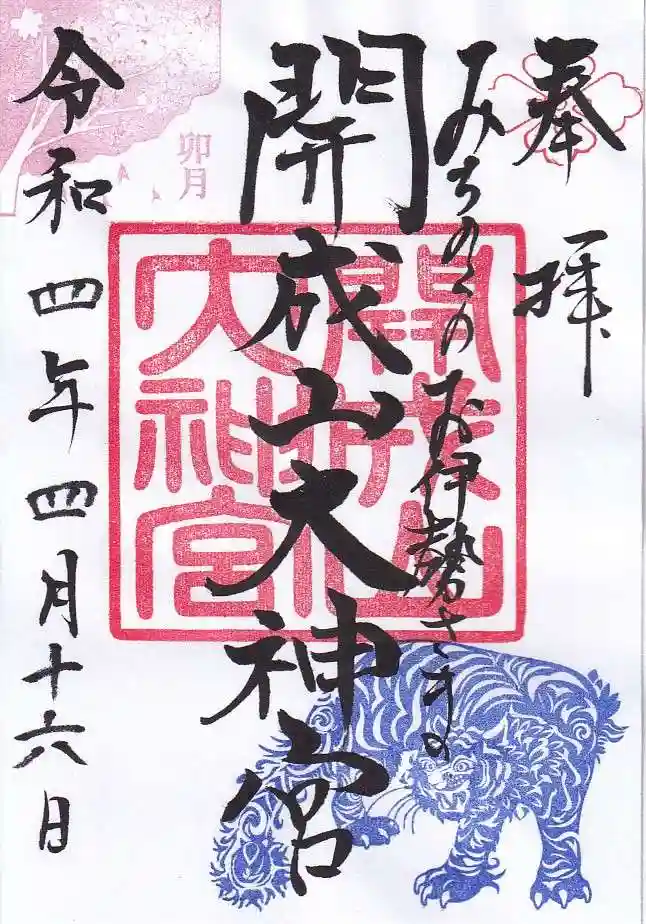 奉拝
みちのくのお伊勢さまの
開成山大神宮
開成山大神宮
卯月
令和四年四月十六日